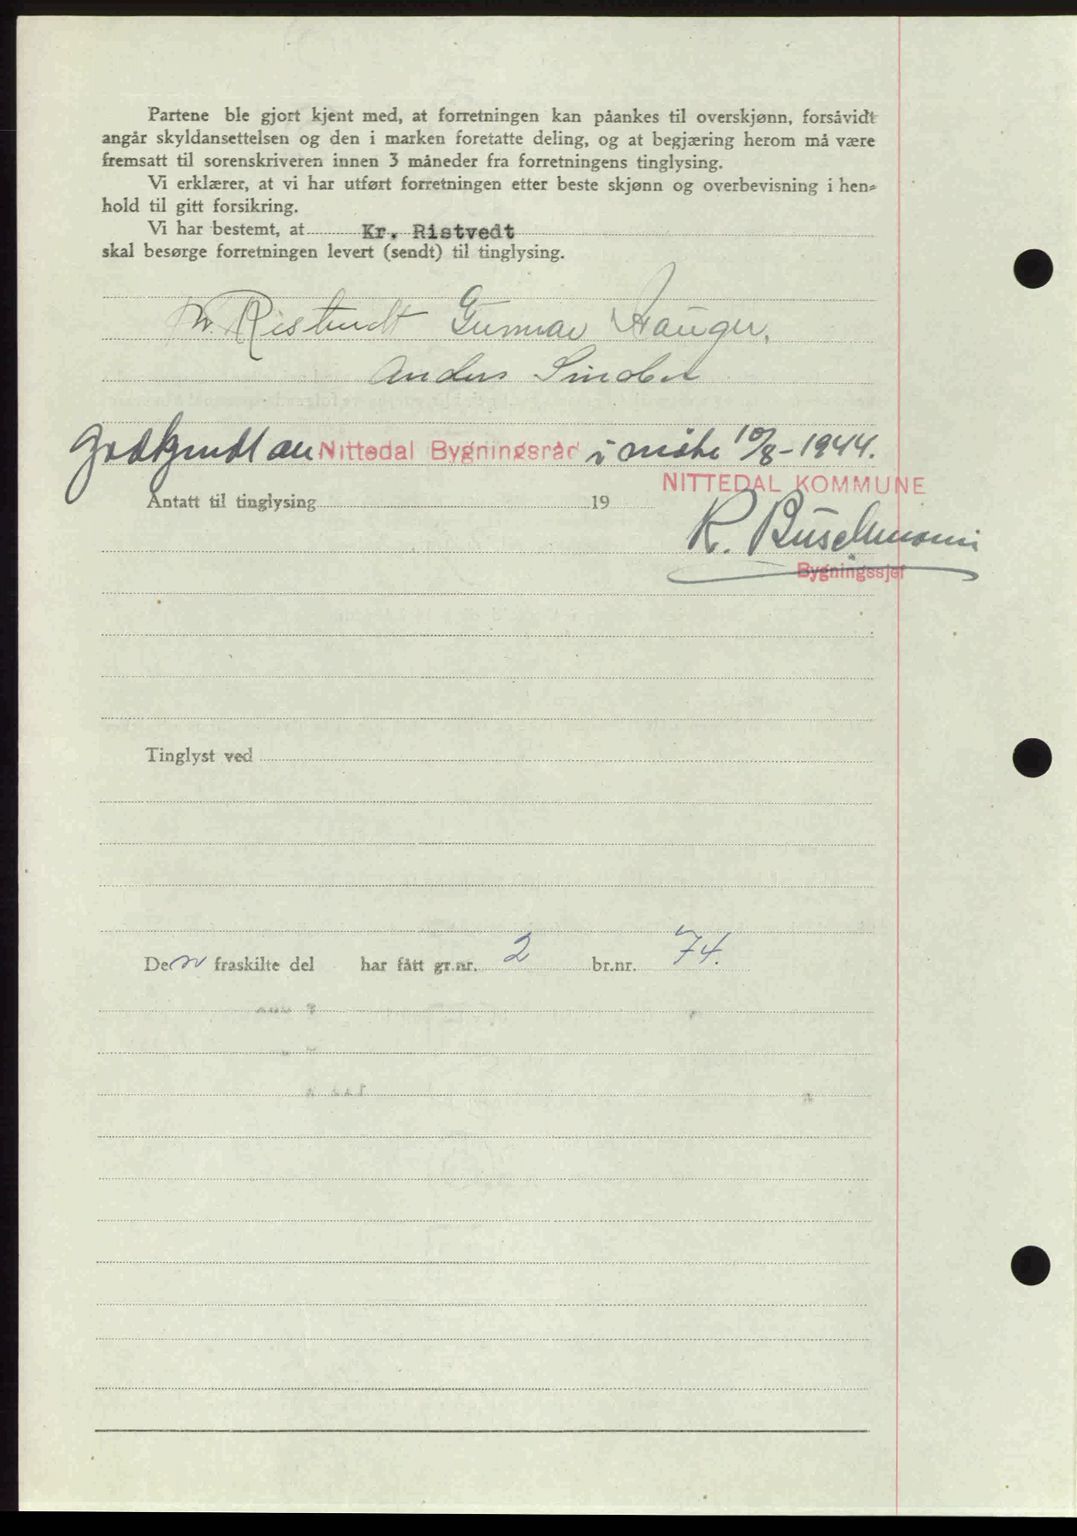 Partene ble gjort kjent med, at forretningen kan påankes til overskjønn, forsåvidt
angår skyldansettelsen og den i marken foretatte deling, og at begjæring herom må være
fremsatt til sorenskriveren innen 3 måneder fra forretningens tinglysing.
Vi erklærer, at vi har utført forretningen etter beste skjønn og overbevisning i hen-
hold til gitt forsikring.
Vi har bestemt, at Kr. Ristvedt
skal besørge forretningen levert (sendt) til tinglysing.
Kr. Ristvedt Gunnar Hauger.
Anders
Godkjendt av Nittedal Bygningsråd i møte 10/8-1944.
NITTEDAL KOMMUNE
Antatt til tinglysing 19
R. Buschmann
Bygningssjef
Tinglyst ved
Den fraskilte del har fått gr.nr. 2 br.nr. 74.